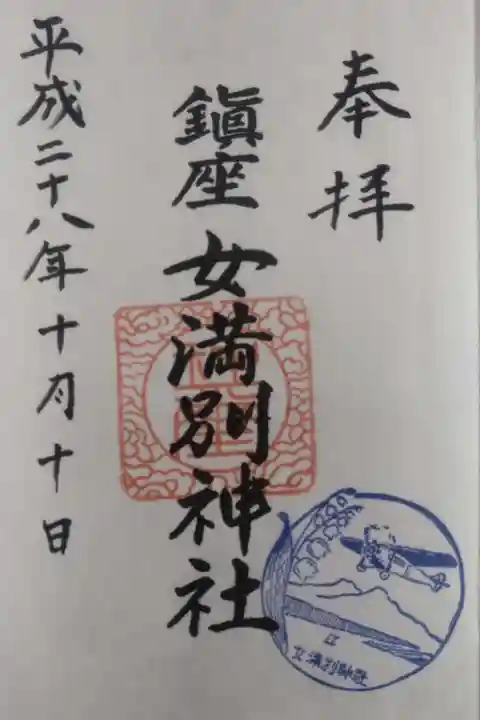 奉拝
鎭座 女満別神社
平成二十八年十月十日
女満別神社